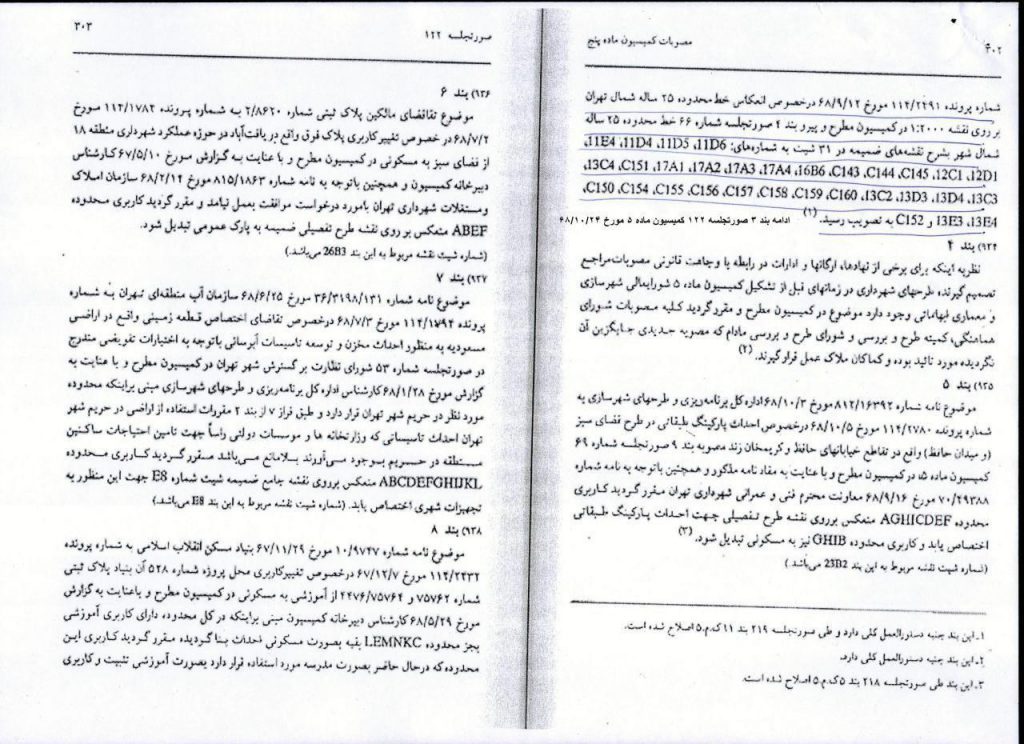 ۴۰۲
مصوبات کمیسیون ماده پنج
شماره پرونده ۱۱۴/۲۴۹۱ مورخ ۶۸/۹/۱۲ درخصوص انعکاس خط محدوده ۲۵ ساله شمال تهران
بر روی نقشه ۱:۲۰۰۰ در کمیسیون مطرح و پیرو بند ۴ صورتجلسه شماره ۶۶ خط محدوده ۲۵ ساله
شمال شهر بشرح نقشه‌های ضمیمه در ۳۱ شیت به شماره‌های: 11E4 ،11D4 ،11D5 ،11D6،
13C4 ،C151 ،17A1 ،17A2 ،17A3 ،17A4 ،16B6 ،C143 ،C144 ،C145 ،12C1 ،12D1،
C150 ،C154 ،C155 ،C156 ،C157 ،C158 ،C159 ،C160 ،13C2 ،13D3 ،13D4 ،13C3،
13E3 ،13E4 و C152 به تصویب رسید. (۱) ادامه بند ۳ صورتجلسه ۱۲۲ کمیسیون ماده ۵ مورخ ۶۸/۱۰/۲۴
۹۲۴) بند ۴
نظریه اینکه برای برخی از نهادها، ارگانها و ادارات در رابطه با وجاهت قانونی مصوبات مراجع
تصمیم گیرنده طرحهای شهرداری در زمانهای قبل از تشکیل کمیسیون ماده ۵ شورایعالی شهرسازی
و معماری ابهاماتی وجود دارد موضوع در کمیسیون مطرح و مقرر گردید کلیه مصوبات شورای
هماهنگی، کمیته طرح و بررسی و شورای طرح و بررسی مادام که مصوبه جدیدی جایگزین آن
نگردیده مورد تائید بوده و کماکان ملاک عمل قرار گیرند. (۲)
۹۲۵) بند ۵
موضوع نامه شماره ۸۱۲/۱۶۳۹۲ مورخ ۶۸/۱۰/۳ اداره کل برنامه‌ریزی و طرحهای شهرسازی به
شماره پرونده ۱۱۴/۲۷۸۰ مورخ ۶۸/۱۰/۵ درخصوص احداث پارکینگ طبقاتی در طرح فضای سبز
(و میدان حافظ) واقع در تقاطع خیابانهای حافظ و کریمخان زند مصوبه بند ۹ صورتجلسه شماره ۶۹
کمیسیون ماده ۵، در کمیسیون مطرح و با عنایت به مفاد نامه مذکور و همچنین باتوجه به نامه شماره
۷۰/۴۹۳۸۸ مورخ ۶۸/۹/۱۶ معاونت محترم فنی و عمرانی شهرداری تهران مقرر گردید کاربری
محدوده AGHICDEF منعکس برروی نقشه طرح تفصیلی جهت احداث پارکینگ طبقاتی
اختصاص یابد و کاربری محدوده GHIB نیز به مسکونی تبدیل شود. (۳)
(شماره شیت نقشه مربوط به این بند 23B2 می‌باشد)
۱ـ این بند جنبه دستورالعمل کلی دارد و طی صورتجلسه ۲۱۹ بند ۱۱ ک.م.۵ اصلاح شده است.
۲ـ این بند جنبه دستورالعمل کلی دارد.
۳ـ این بند طی صورتجلسه ۲۱۸ بند ۵ ک.م.۵ اصلاح شده است.
صورتجلسه ۱۲۲
۳۰۳
۹۲۶) بند ۶
موضوع تقاضای مالکین پلاک ثبتی شماره ۲/۸۶۲۰ به شماره پرونده ۱۱۴/۱۷۸۲ مورخ
۶۸/۷/۲ در خصوص تغییر کاربری پلاک فوق واقع در یافت‌آباد در حوزه عملکرد شهرداری منطقه ۱۸
از فضای سبز به مسکونی در کمیسیون مطرح و با عنایت به گزارش مورخ ۶۷/۵/۱۰ کارشناس
دبیرخانه کمیسیون و همچنین باتوجه به نامه شماره ۸۱۵/۱۸۶۳ مورخ ۶۸/۲/۱۴ سازمان املاک
ومستغلات شهرداری تهران بامورد درخواست موافقت بعمل نیامد و مقرر گردید کاربری محدوده
ABEF منعکس بر روی نقشه طرح تفصیلی ضمیمه به پارک عمومی تبدیل شود.
(شماره شیت نقشه مربوط به این بند 26B3 می‌باشد.)
۹۲۷) بند ۷
موضوع نامه شماره ۳۶/۳۱۹۸/۱۳۱ مورخ ۶۸/۶/۲۵ سازمان آب منطقه‌ای تهران به شماره
پرونده ۱۱۴/۱۷۹۴ مورخ ۶۸/۷/۳ درخصوص تقاضای اختصاص قطعه زمینی واقع در اراضی
مسعودیه به منظور احداث مخزن و توسعه تاسیسات آبرسانی باتوجه به اختیارات تفویضی مندرج
در صورتجلسه شماره ۵۳ شورای نظارت بر گسترش شهر تهران در کمیسیون مطرح و با عنایت به
گزارش مورخ ۶۸/۱/۲۸ کارشناس اداره کل برنامه‌ریزی و طرحهای شهرسازی مبنی براینکه محدوده
مورد نظر در حریم شهر تهران قرار دارد و طبق فراز ۷ از بند ۲ مقررات استفاده از اراضی در حریم شهر
تهران احداث تاسیساتی که وزارتخانه ها و موسسات دولتی راساً جهت تامین احتیاجات ساکنین
منطقه در حریم بوجود می‌آورند بلامانع می‌باشد مقرر گردید کاربری محدوده
ABCDEFGHIJKL منعکس برروی نقشه جامع ضمیمه شیت شماره E8 جهت این منظور به
تجهیزات شهری اختصاص یابد. (شماره شیت نقشه مربوط به این بند E8 می‌باشد.)
۹۲۸) بند ۸
موضوع نامه شماره ۱۰/۹۷۴۷ مورخ ۶۷/۱۱/۲۹ بنیاد مسکن انقلاب اسلامی به شماره پرونده
۱۱۴/۲۴۳۲ مورخ ۶۷/۱۲/۷ درخصوص تغییرکاربری محل پروژه شماره ۵۲۸ آن بنیاد پلاک ثبتی
شماره ۷۵۷۶۲ و ۲۴۷۶/۷۵۷۶۴ از آموزشی به مسکونی در کمیسیون مطرح و باعنایت به گزارش
مورخ ۶۸/۵/۲۹ کارشناس دبیرخانه کمیسیون مبنی براینکه در کل محدوده دارای کاربری آموزشی
بجز محدوده LEMNKC بقیه بصورت مسکونی احداث بنا گردیده مقرر گردید کاربری این
محدوده که درحال حاضر بصورت مدرسه مورد استفاده قرار دارد بصورت آموزشی تثبیت و کاربری